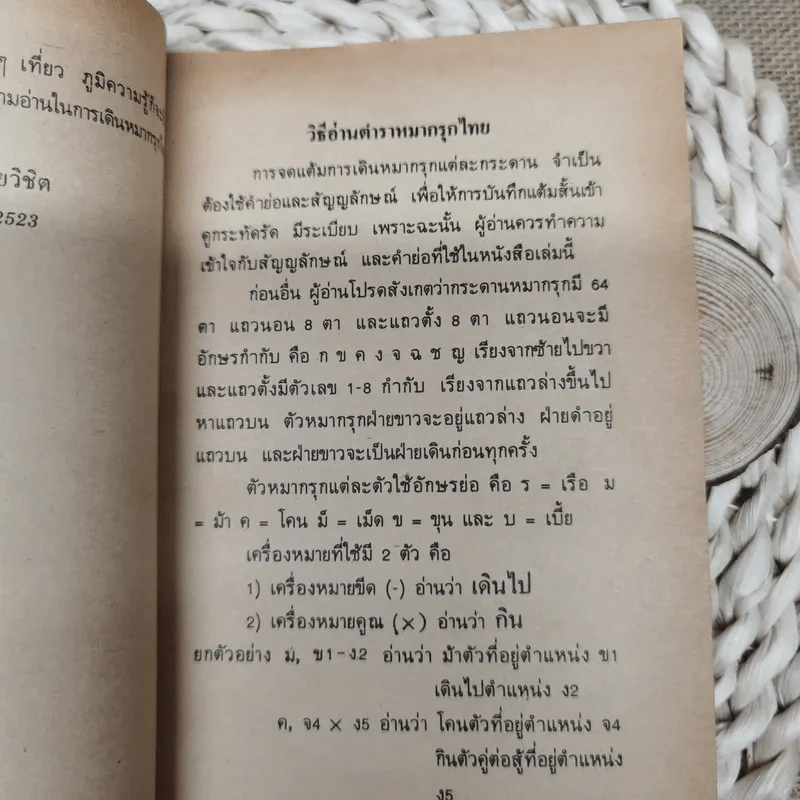 ๆ เที่ยว ภูมิความรู้ที่
ามอ่านในการเดินหมากรุก
ยวิชิต
2523
วิธีอ่านตำราหมากรุกไทย
การจดแต้มการเดินหมากรุกแต่ละกระดาน จำเป็น
ต้องใช้คำย่อและสัญญลักษณ์ เพื่อให้การบันทึกแต้มสั้นเข้า
ดูกระทัดรัด มีระเบียบ เพราะฉะนั้น ผู้อ่านควรทำความ
เข้าใจกับสัญญลักษณ์ และคำย่อที่ใช้ในหนังสือเล่มนี้
ก่อนอื่น ผู้อ่านโปรดสังเกตว่ากระดานหมากรุกมี 64
ตา แถวนอน 8 ตา และแถวตั้ง 8 ตา แถวนอนจะมี
อักษรกำกับ คือ ก ข ค ง จ ฉ ช ญ เรียงจากซ้ายไปขวา
และแถวตั้งมีตัวเลข 1-8 กำกับ เรียงจากแถวล่างขึ้นไป
หาแถวบน ตัวหมากรุกฝ่ายขาวจะอยู่แถวล่าง ฝ่ายดำอยู่
แถวบน และฝ่ายขาวจะเป็นฝ่ายเดินก่อนทุกครั้ง
ตัวหมากรุกแต่ละตัวใช้อักษรย่อ คือ ร = เรือ ม
= ม้า ค = โคน ม็ = เม็ด ข = ขุน และ บ = เบี้ย
เครื่องหมายที่ใช้มี 2 ตัว คือ
1) เครื่องหมายขีด (-) อ่านว่า เดินไป
2) เครื่องหมายคูณ (×) อ่านว่า กิน
ยกตัวอย่าง ม, ข1-ง2 อ่านว่า ม้าตัวที่อยู่ตำแหน่ง ข1
เดินไปตำแหน่ง ง2
ค, จ4 × ง5 อ่านว่า โคนตัวที่อยู่ตำแหน่ง จ4
กินตัวคู่ต่อสู้ที่อยู่ตำแหน่ง
ง5